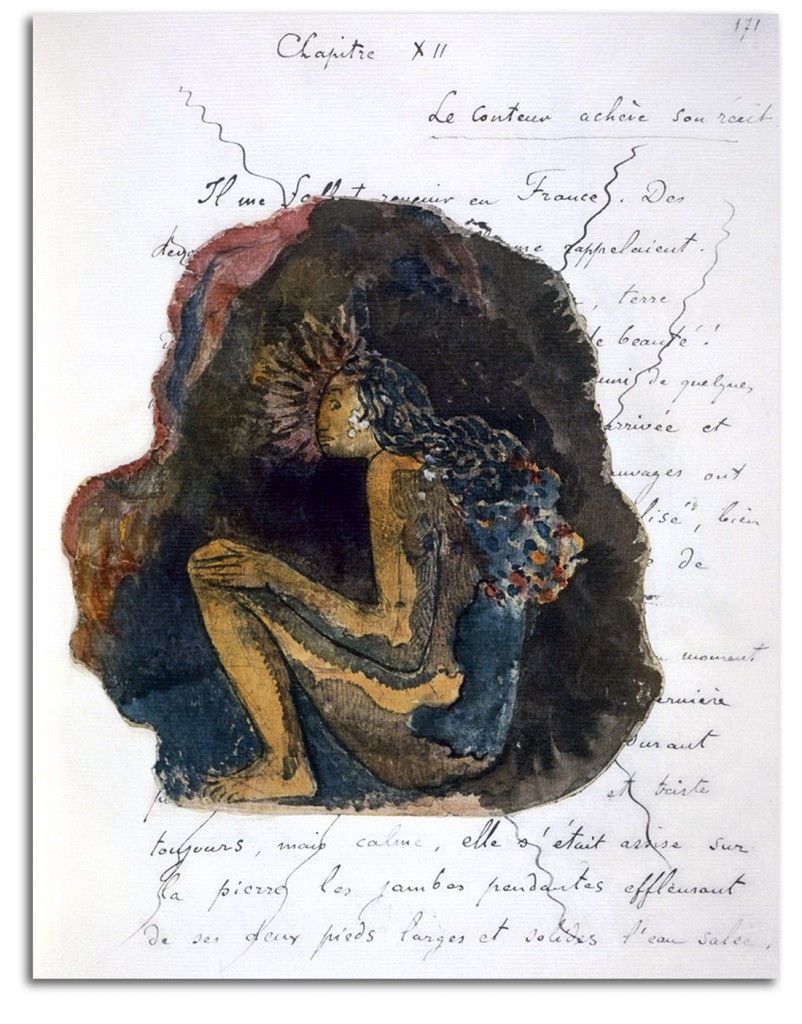 171
Chapitre XII
Le conteur achève son récit
Il me fallut revenir en France. Des
me rappelaient.
, terre
de beauté!
de quelques
arrivée et
uvages ont
lisé, bien
de
moment
ernière
durant
et triste
toujours, mais calme, elle s'était assise sur
la pierre les jambes pendantes effleurant
de ses deux pieds larges et solides l'eau salée,